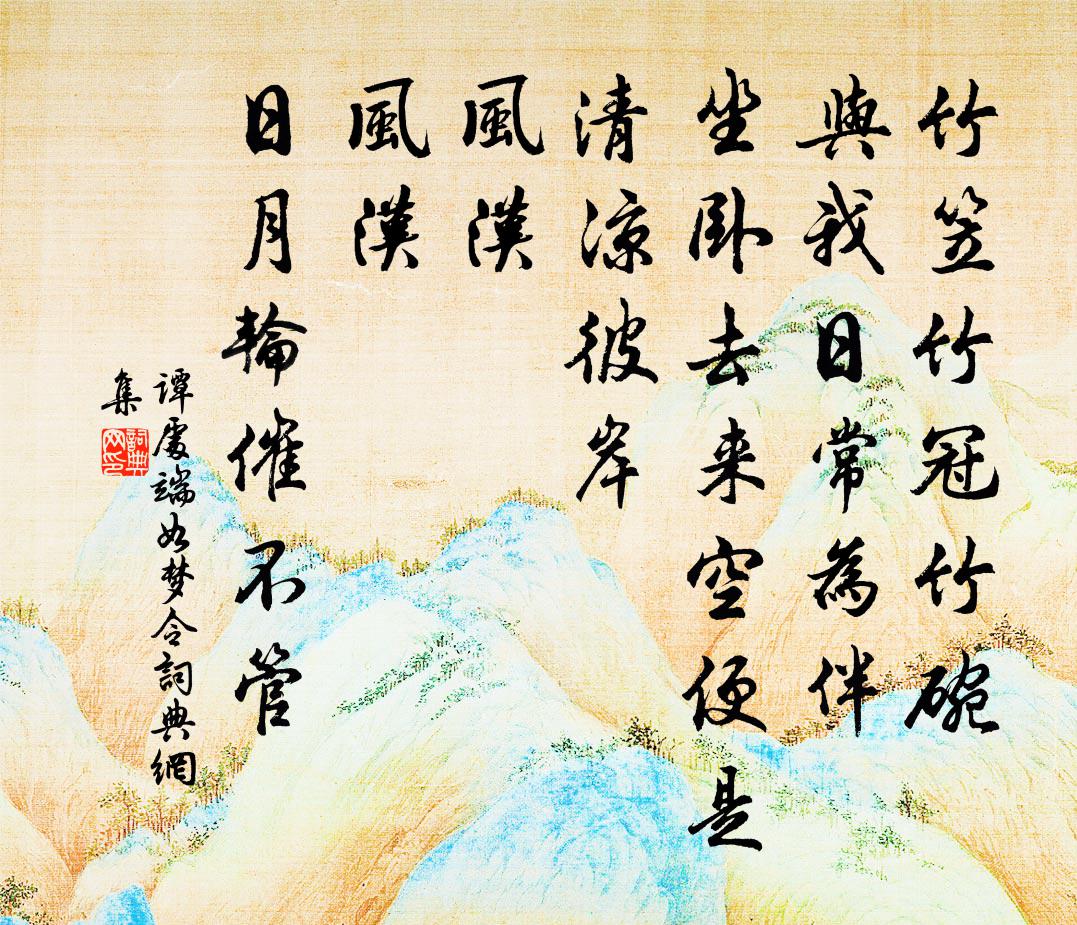 竹笠竹冠竹碗
與我日常為伴
坐卧去来空便是
清涼彼岸
風漢
風漢
日月輪催不管
譚處端如梦令詞典網
集
詞典網印